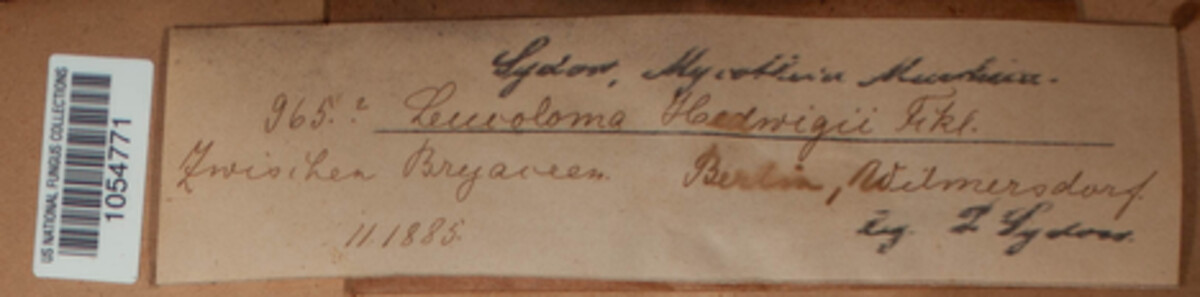 US NATIONAL FUNGUS COLLECTIONS
1054771
Sydow, Mycotheca Marchica.
965. Leucoloma Hedwigii Fkl.
Zwischen Bryaceen. Berlin, Wilmersdorf.
11.1885. leg. P Sydow.